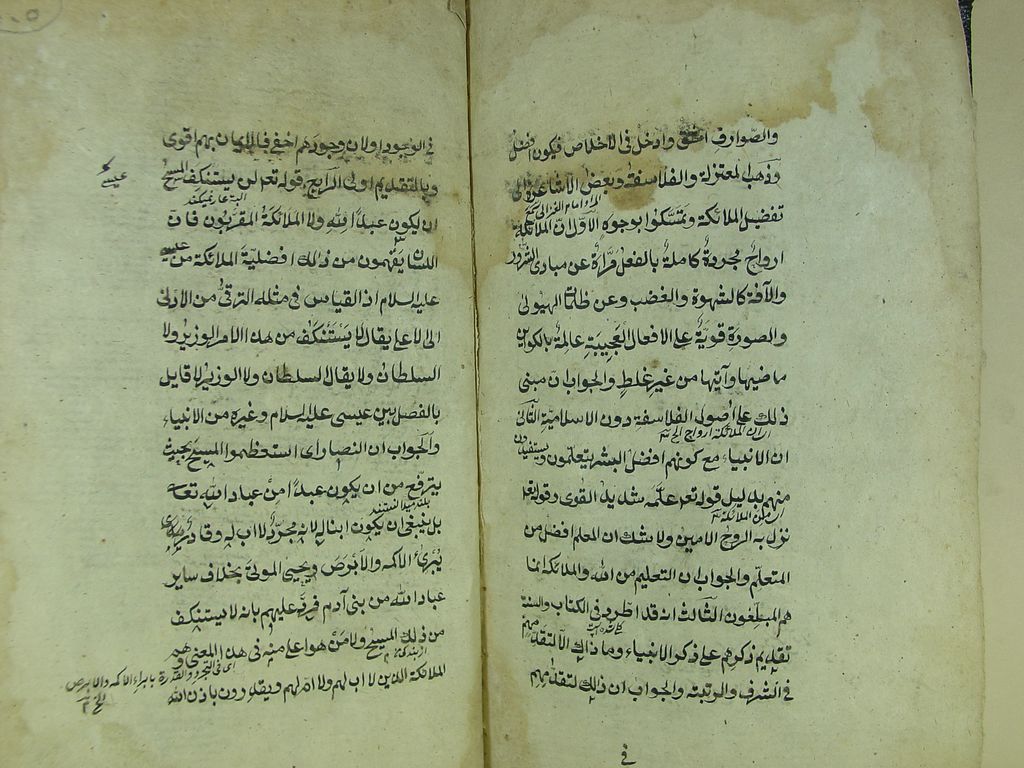 والصوارف اشق وادخل فى الاخلاص فيكون افضل
وذهب المعتزلة والفلاسفة وبعض الاشاعرة الى
تفضيل الملائكة وتمسكوا بوجوه الاول ان الملائكة
ارواح مجردة كاملة بالفعل مبرأة عن مبادى الشرور
والآفة كالشهوة والغضب وعن ظلمات الهيولى
والصورة قوية على الافعال العجيبة عالمة بالكوائن
ماضيها وآتيها من غير غلط والجواب ان مبنى
ذلك على اصول الفلاسفة دون الاسلامية الثانى
ان الانبياء مع كونهم افضل البشر يتعلمون ويستفيدون
منهم بدليل قوله تعر علمه شديد القوى وقوله تعر
نزل به الروح الامين ولا شك ان المعلم افضل من
المتعلم والجواب ان التعليم من الله والملائكة انما
هم المبلغون الثالث انه قد اطرد فى الكتاب والسنة
تقديم ذكرهم على ذكر الانبياء وما ذلك الا لتقدمهم
فى الشرف والرتبة والجواب ان ذلك لتقدمهم
فى
فى الوجود او لان وجودهم اخفى فالايمان بهم اقوى
وبالتقديم اولى الرابع قوله تعر لن يستنكف المسيح
عيسى
ان يكون عبدا لله ولا الملائكة المقربون فان
اللسان يفهمون من ذلك افضلية الملائكة من عيسى
عليه السلام اذ القياس فى مثله الترقى من الادنى
الى الاعلى يقال لا يستنكف من هذا الامر الوزير ولا
السلطان ولا يقال السلطان ولا الوزير لا قايل
بالفصل بين عيسى عليه السلام وغيره من الانبياء
والجواب ان النصارى استعظموا المسيح بحيث
يترفع من ان يكون عبدا من عباد الله تعه
بل ينبغى ان يكون ابنا له لانه مجرد لا اب له وقادر
يبرئ الاكمه والابرص ويحيى الموتى بخلاف ساير
عباد الله من بنى آدم فرد عليهم بانه لا يستنكف
من ذلك المسيح ولا من هو اعلى منه فى هذا المعنى وهم
الملائكة الذين لا اب لهم ولا ام لهم ويقدرون باذن الله
اى فى التجرد والقدرة بابراء الاكمه والابرص
الخ